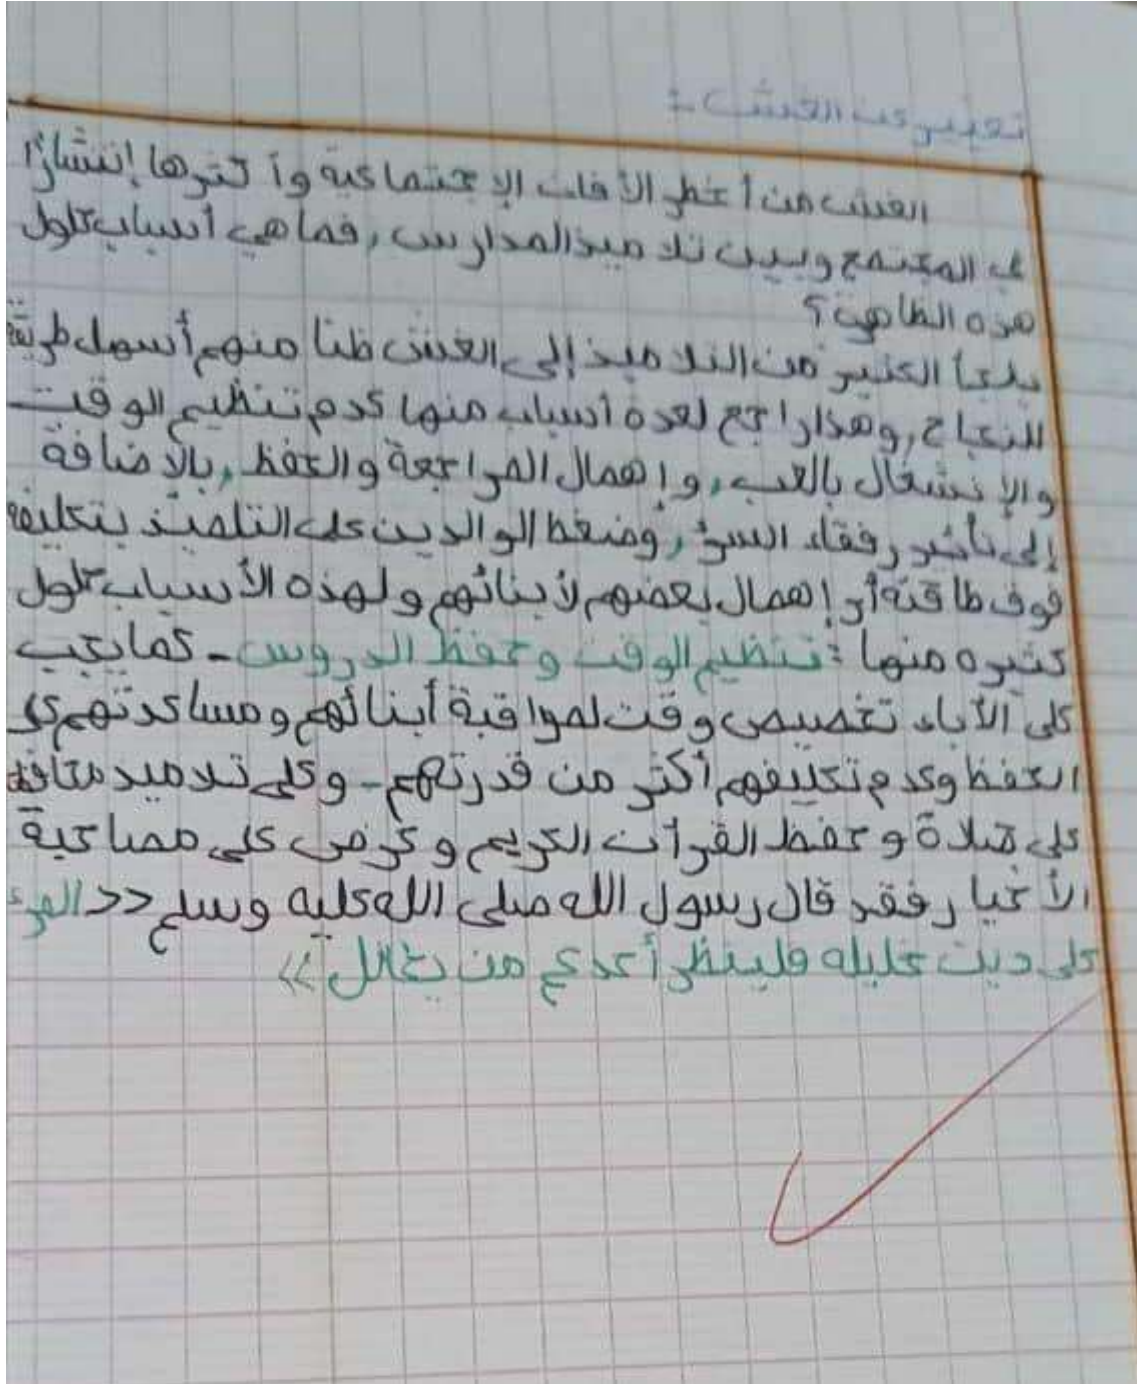 تعبير عن الغش :
الغش من أخطر الآفات الإجتماعية وأكثرها إنتشارًا
في المجتمع وبين تلاميذ المدارس, فما هي أسباب حلول
هذه الظاهرة؟
يلجأ الكثير من التلاميذ إلى الغش ظنا منهم أسهل طريقة
للنجاح, وهذا راجع لعدة أسباب منها عدم تنظيم الوقت
والإنشغال بالعب, وإهمال المراجعة والحفظ, بالاضافة
إلى تأثير رفقاء السوء, وضغط الوالدين على التلميذ بتكليفه
فوق طاقته أو إهمال بعضهم لأبنائهم ولهذه الأسباب حلول
كثيره منها : تنظيم الوقت وحفظ الدروس - كما يجب
على الأباء تخصيص وقت لمراقبة أبنائهم ومساعدتهم في
الحفظ وعدم تكليفهم أكثر من قدرتهم - وعلى تلاميد
على صلاة وحفظ القرآن الكريم و على مصاحبة
الأخيار فقد قال رسول الله صلى الله عليه وسلم << المرء
على دين خليله فلينظر أحدكم من يخالل >>